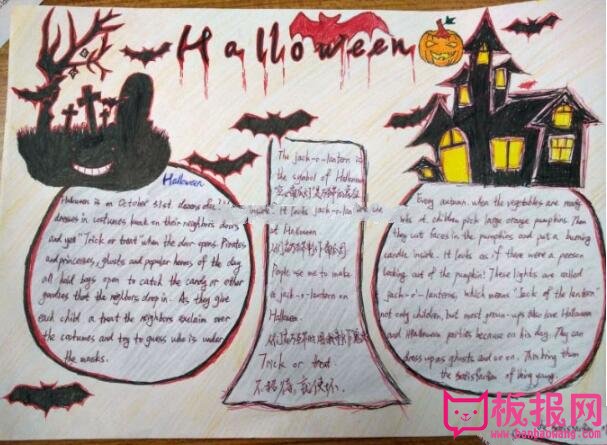 Halloween
Halloween
Halloween is on October 31st
dresses in costumes knock on their neighbors doors
and yell "Trick or treat" when the door opens. Pirates
and princesses, ghosts and popular heroes of the day
all hold bags open to catch the candy or other
goodies that the neighbors drop in. As they give
each child a treat the neighbors exclaim over
the costumes and try to guess who is under
the masks.
The jack-o-lantern is
the symbol of Halloween
inside. It looks jack-o-lantern
at Halloween
People use me to make
a jack-o-lantern on
Halloween.
Trick or treat
不招待,就使坏.
Every autumn when the vegetables are ready
children pick large orange pumpkins. Then
they cut faces in the pumpkins and put a burning
candle inside. It looks as if there were a person
looking out of the pumpkin! These lights are called
jack-o'-lanterns, which means "Jack of the lantern"
not only children, but most grown-ups also love Halloween
and Halloween parties because on his day. They can
dress up as ghosts and so on. This bring them
the satisfaction of being young.
板报网
www.banbaowang.com